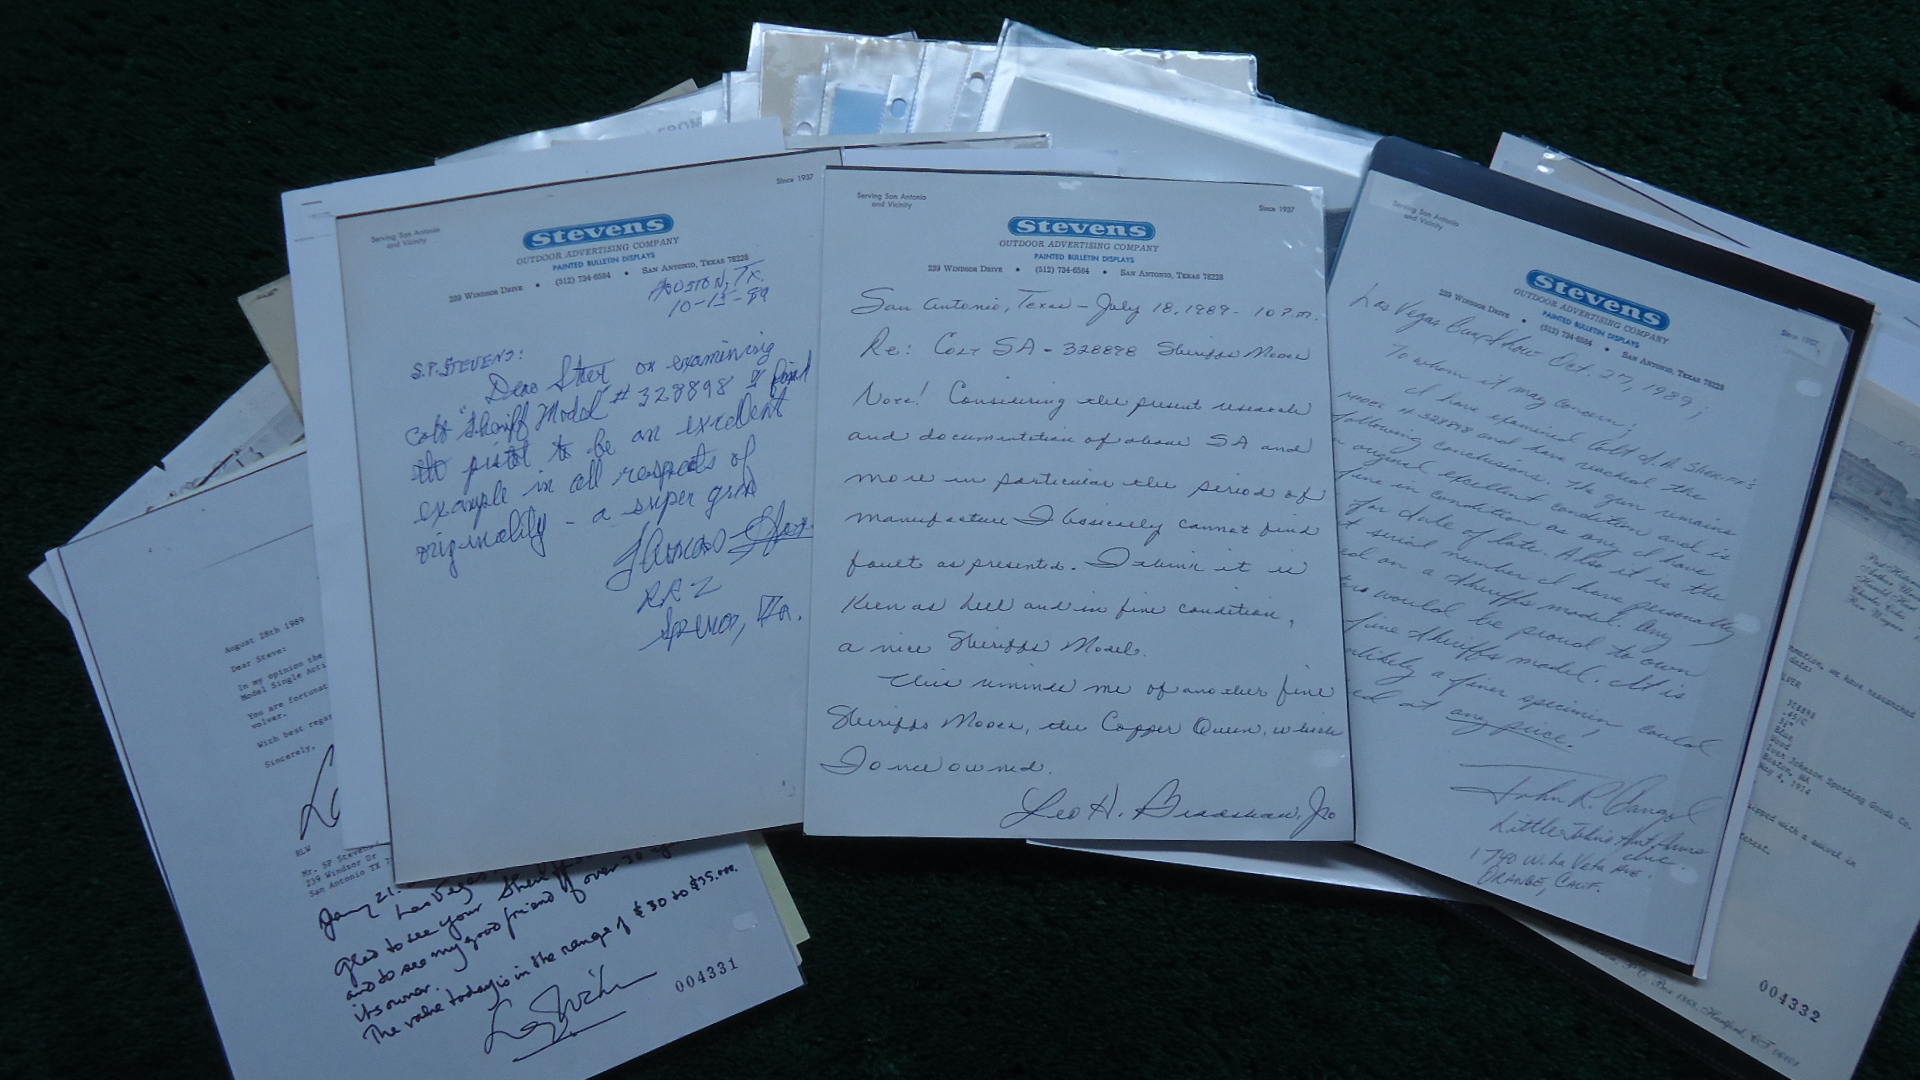 Since 1937
Serving San Antonio
and Vicinity
Stevens
OUTDOOR ADVERTISING COMPANY
PAINTED BULLETIN DISPLAYS
239 WINDSOR DRIVE • (512) 734-6584 • SAN ANTONIO, TEXAS 78228
HOUSTON, TX.
10-15-89
S.P. STEVENS:
Dear Steve on examining
Colt "Sheriff Model" # 328898 I find
the pistol to be an excellent
example in all respects of
originality - a super gun
RR 2
Serving San Antonio
and Vicinity
Since 1937
Stevens
OUTDOOR ADVERTISING COMPANY
PAINTED BULLETIN DISPLAYS
239 WINDSOR DRIVE • (512) 734-6584 • SAN ANTONIO, TEXAS 78228
San Antonio, Texas - July 18, 1989 - 10 P.M.
Re: Colt SA - 328898 Sheriffs Model
Note! Considering the present research
and documentation of above SA and
more in particular the period of
manufacture I basically cannot find
fault as presented. I think it is
Keen as hell and in fine condition,
a nice Sheriffs Model.
This reminds me of another fine
Sheriffs Model, the Copper Queen, which
I once owned.
Leo H. Bradshaw, Jr
Serving San Antonio
and Vicinity
Since 1937
Stevens
OUTDOOR ADVERTISING COMPANY
PAINTED BULLETIN DISPLAYS
239 WINDSOR DRIVE • (512) 734-6584 • SAN ANTONIO, TEXAS 78228
Las Vegas Gun Show Oct. 27, 1989;
To whom it may concern;
I have examined Colt S.A. Sheriff's
Model # 328898 and have reached the
following conclusions. The gun remains
original excellent condition and is
fine in condition as any I have
for sale of late. Also it is the
serial number I have personally
on a Sheriffs model. Any
would be proud to own
fine Sheriffs model. It is
unlikely a finer specimen could
at any price!
John R.
Little John's Ant. Arms
Inc.
1740 W. La Veta Ave.
ORANGE, CALIF.
August 28th 1989
Dear Steve:
In my opinion the
Model Single Acti
You are fortunat
volver.
With best regar
Sincerely,
RLW
Mr. SP Stevens
239 Windsor Dr
San Antonio TX 7
Las Vegas,
glad to see your Sheriff's
and to see my good friend of over 30 y
its owner.
The value today is in the range of $30 to $35,000.
004331
mation, we have researched
data:
VER
328898
Blue
Wood
Iver Johnson Sporting Goods Co.
Boston, MA
May 4, 1974
ipped with a swivel in
terest.
004332